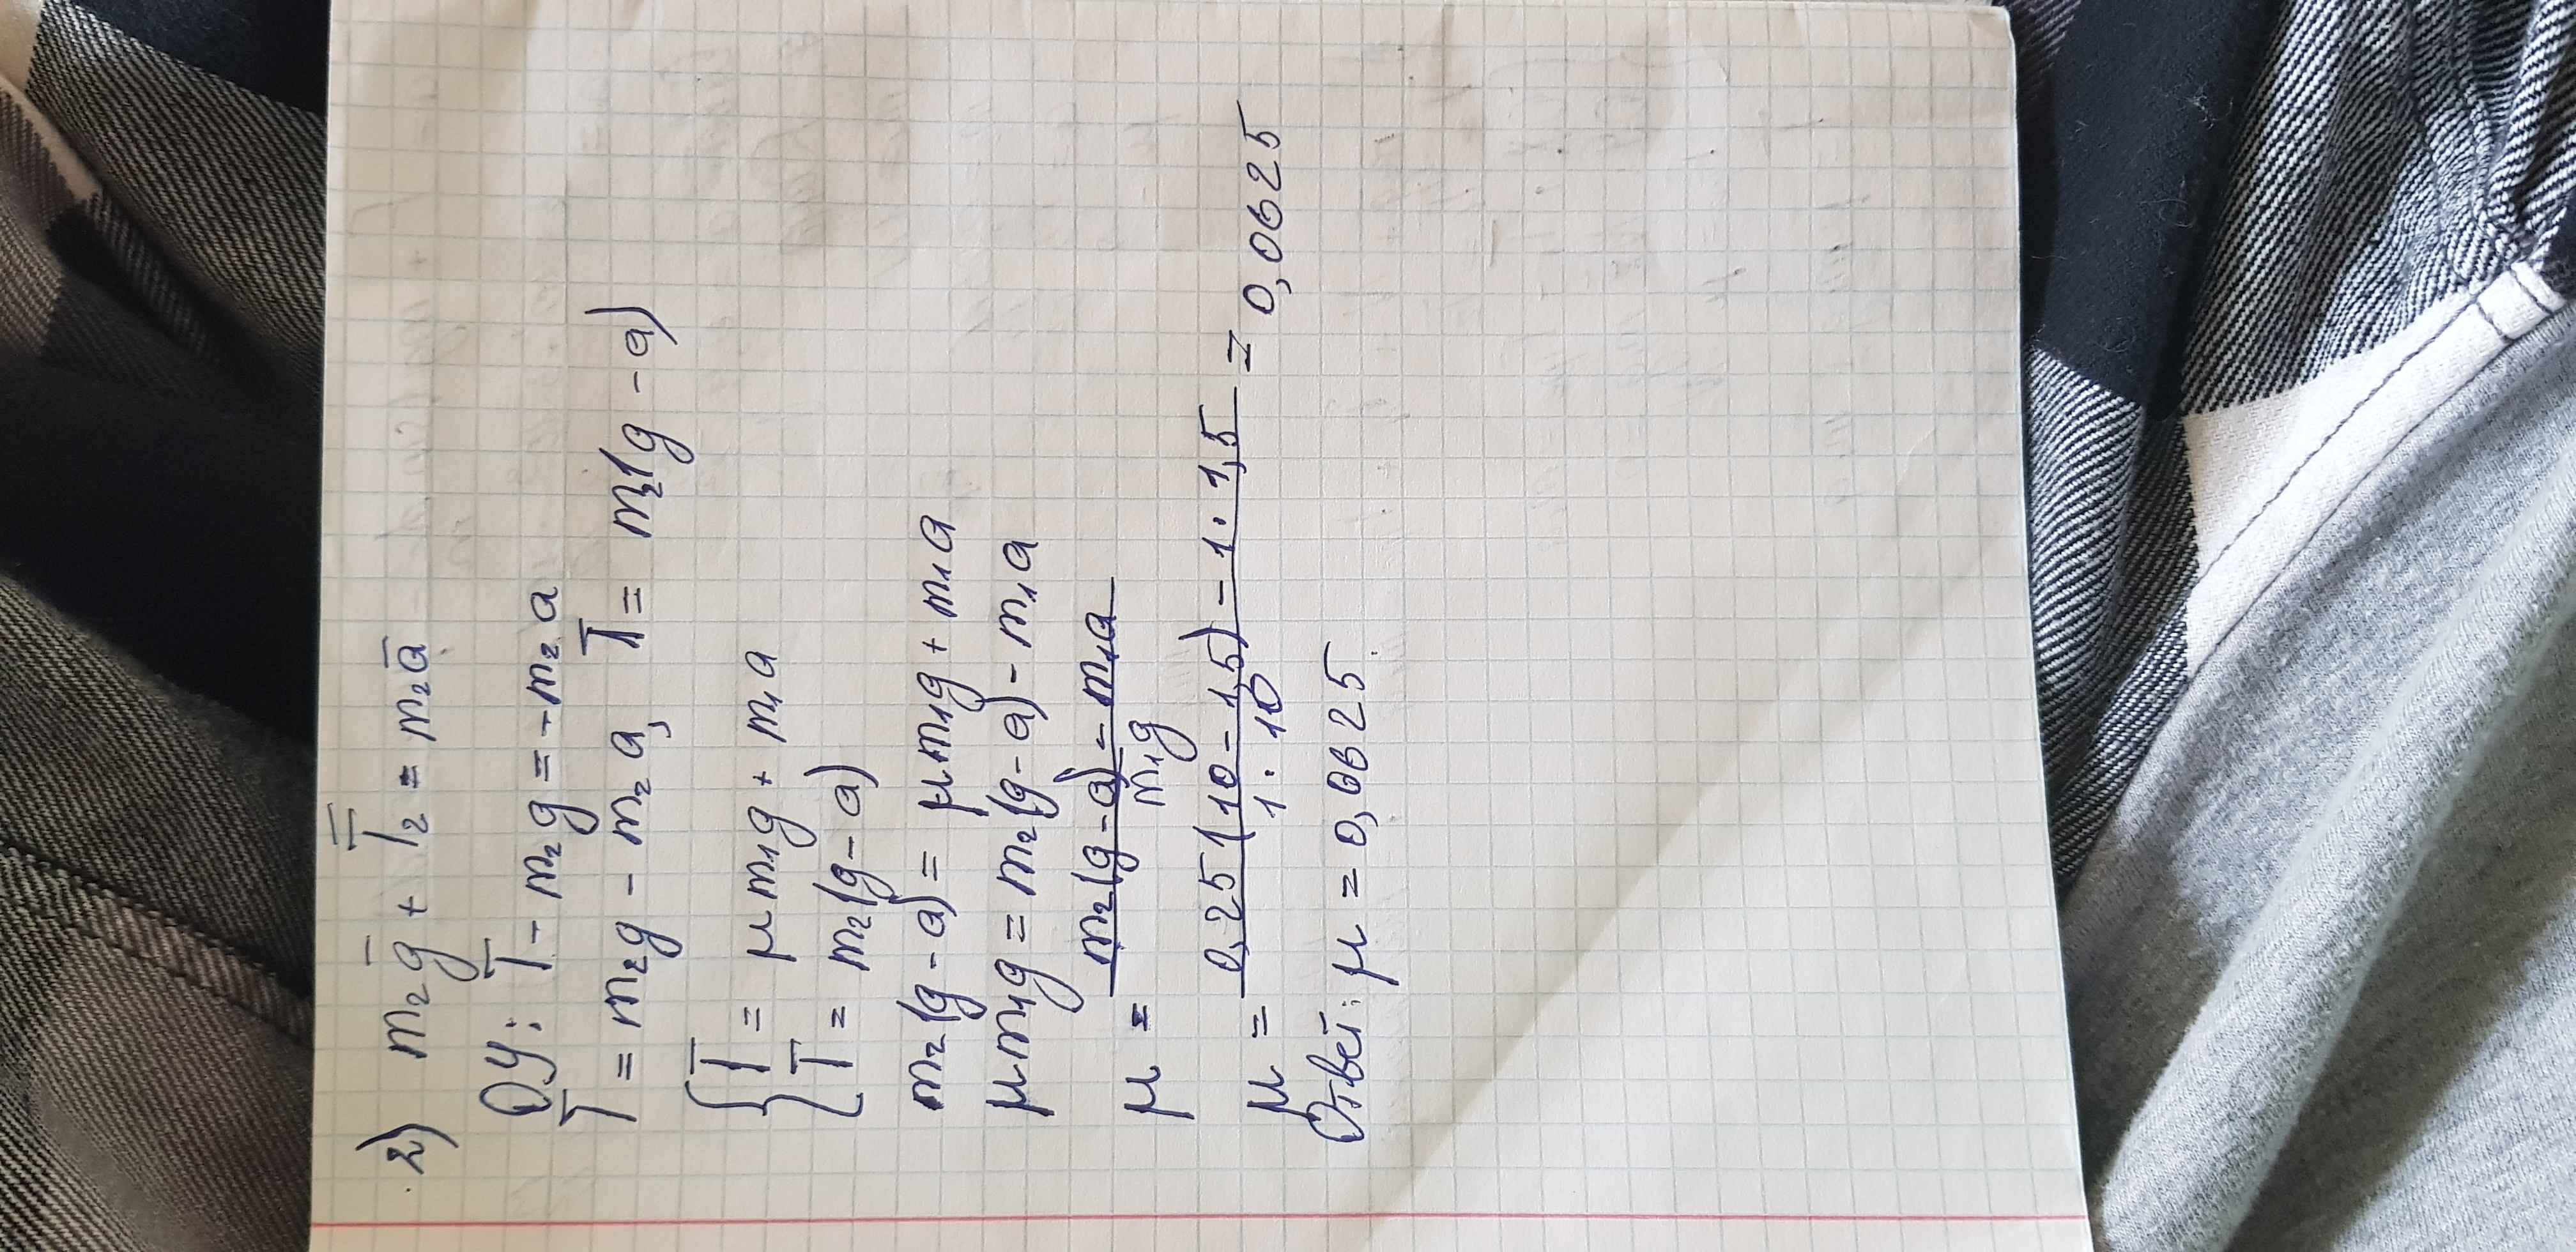 2) m₂g̅ + T̅₂ = m₂a̅
OY: T̅ - m₂g = -m₂a
T̅ = m₂g - m₂a, T̅ = m₂(g - a)
{ T̅ = μm₁g + m₁a
T̅ = m₂(g - a)
m₂(g - a) = μm₁g + m₁a
μm₁g = m₂(g - a) - m₁a
μ = m₂(g - a) - m₁a / m₁g
μ = 0,25(10 - 1,5) - 1 · 1,5 / 1 · 10 = 0,0625
Ответ: μ = 0,0625